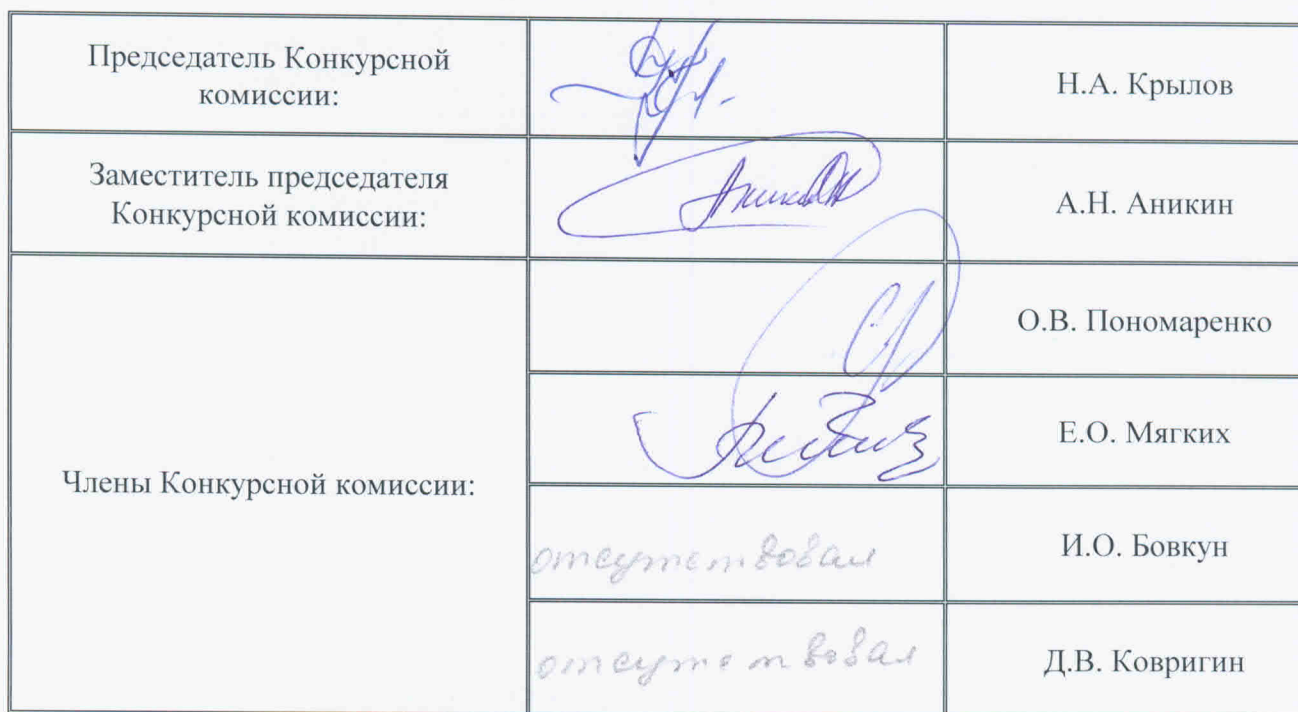 Председатель Конкурсной
комиссии:
Н.А. Крылов
Заместитель председателя
Конкурсной комиссии:
А.Н. Аникин
Члены Конкурсной комиссии:
О.В. Пономаренко
Е.О. Мягких
отсутствовал
И.О. Бовкун
отсутствовал
Д.В. Ковригин